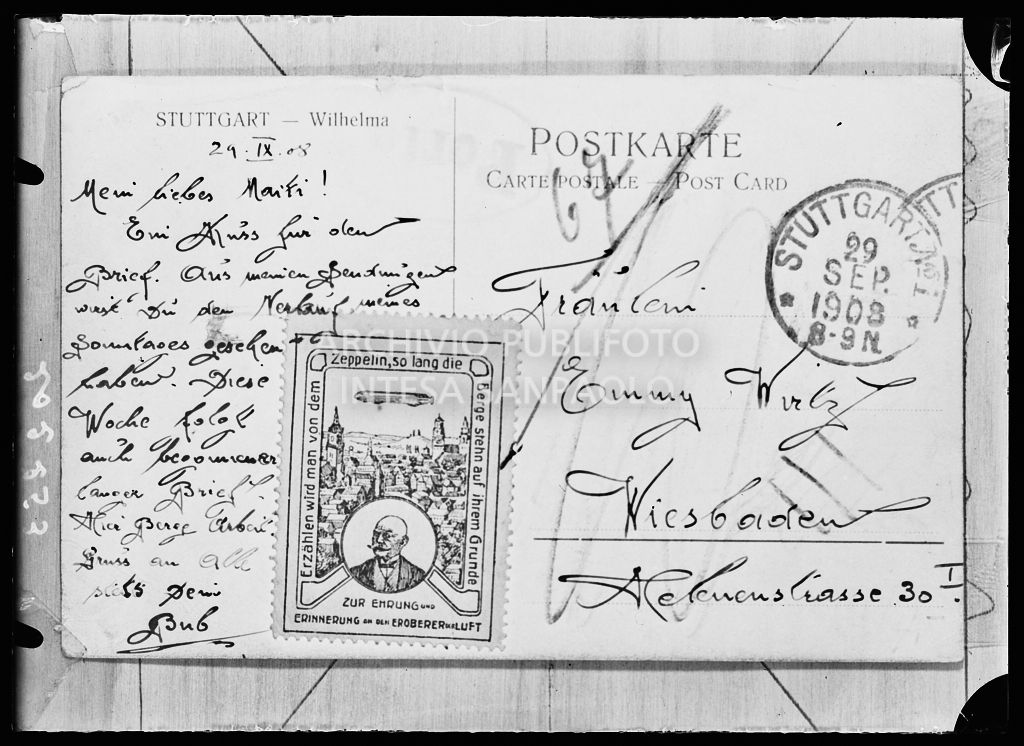 STUTTGART — Wilhelma
29. IX. 08
Mein liebes Maiki!
Ein Kuss für den
Brief. Aus meinen Sendungen
wirst Du den Verlauf meines
Sonntages gesehen
haben. Diese
Woche folgt
auch
langer Brief.
Arbeit.
Gruss an alle
stets Dein
Bub
POSTKARTE
CARTE POSTALE — POST CARD
67
Fräulein
Emmy Wirtz
Wiesbaden
Helenenstrasse 30 I.
STUTTGART No 1
29
SEP.
1908
8-9 N.
STUTT
Erzählen wird man von dem
Zeppelin, so lang die
Berge stehn auf ihrem Grunde
ZUR EHRUNG UND
ERINNERUNG AN DEN EROBERER DER LUFT
ARCHIVIO PUBLIFOTO
INTESA SANPAOLO